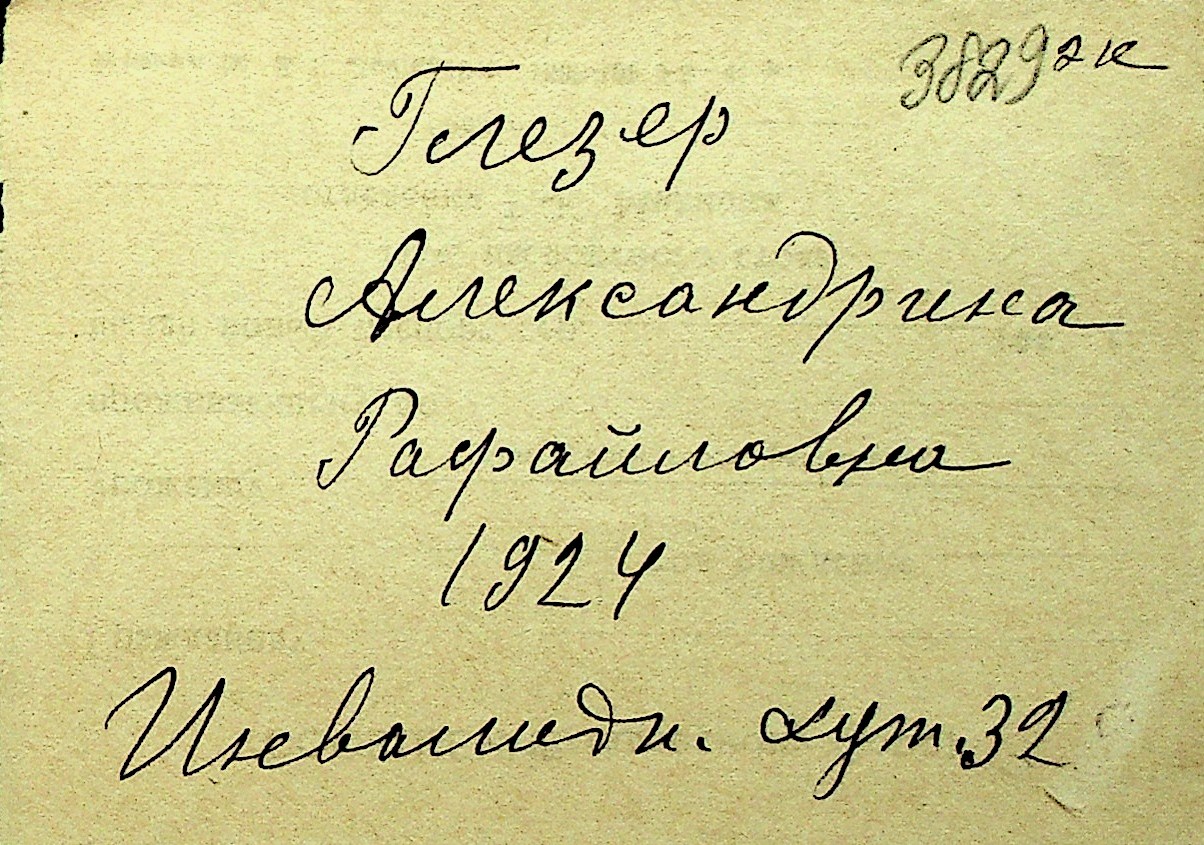 3829 эк
Глезер
Александрина
Рафайловна
1924
Инвалидн. хут. 32